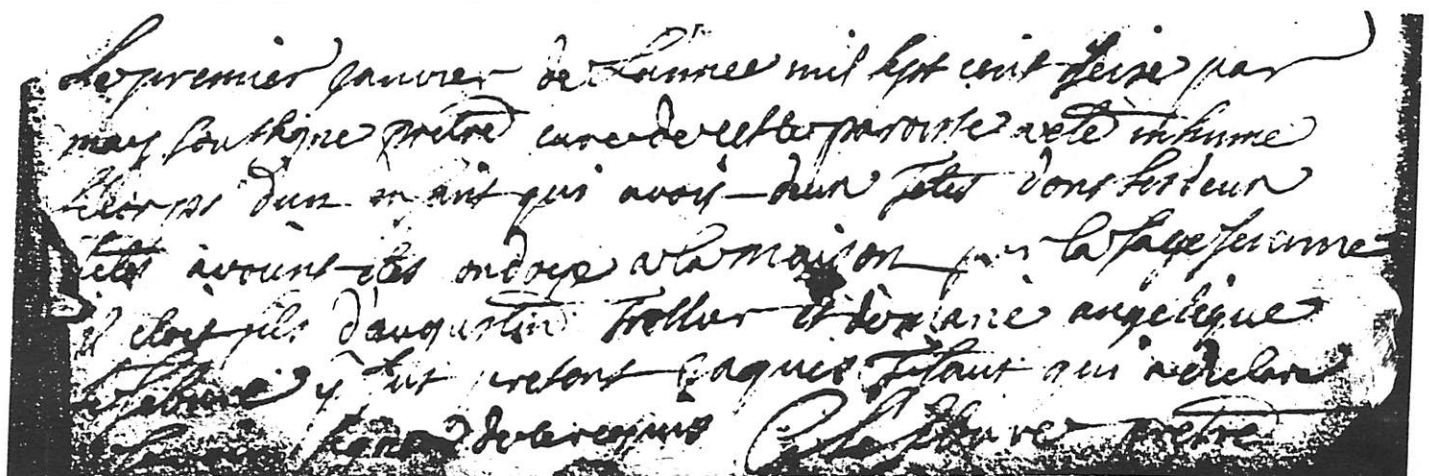 Le premier janvier de Lannee mil sept cent seize par
moy soussigne prètre curé de cette paroisse a eté inhume
le corps d'un enfant qui avoit deux Tetes dont les deux
tetes avoient etes ondoye a la maison par la sage femme
il etoit fils d'augustin Trottier et de marie angelique
Lefebvre y fut present Jaques Titaut qui a declare
de ce requis C Le febvre prètre